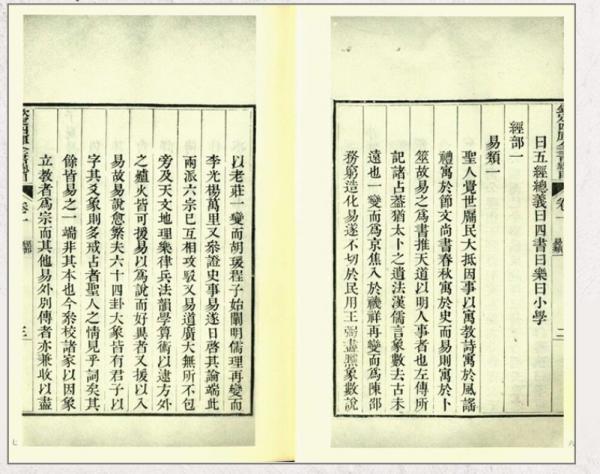 卷一
二
曰五經總義曰四書曰樂曰小學
經部一
易類一
聖人覺世牖民大抵因事以寓教詩寓於風謠
禮寓於節文尚書春秋寓於史而易則寓於卜
筮故易之爲書推天道以明人事者也左傳所
記諸占葢猶太卜之遺法漢儒言象數去古未
遠也一變而爲京焦入於禨祥再變而爲陳邵
務窮造化易遂不切於民用王弼盡黜象數說
以老莊一變而胡瑗程子始闡明儒理再變而
李光楊萬里又叅證史事易遂日啓其論端此
兩派六宗已互相攻駁又易道廣大無所不包
旁及天文地理樂律兵法韻學算術以逮方外
之爐火皆可援易以爲說而好異者又援以入
易故易說愈繁夫六十四卦大象皆有君子以
字其爻象則多戒占者聖人之情見乎詞矣其
餘皆易之一端非其本也今叅校諸家以因象
立教者爲宗而其他易外別傳者亦兼收以盡
卷一
三
七